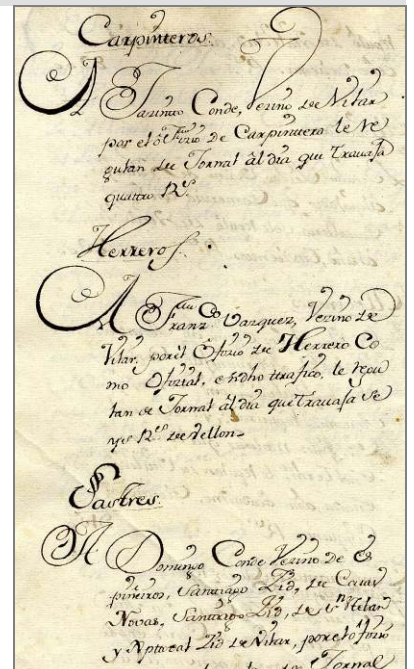 Carpinteros.
A Jazinto Conde, Vezino de Vilar
por el ofizio de Carpintero le re
gulan de Jornal al dia que Travaja
quattro Rs.
Herreros.
A Franzco Vazquez, Vezino de
Vilar, por el Ofizio de Herrero Co
mo Ofizial, e hdho trafico, le regu
lan de Jornal al dia que Travaja se
ys Rs. de vellon.
Sastres.
A Domingo Conde Vezino de Es
piñeiros, Santiago Zid, de Casar
Novas, Santiago Zid, de
y Zid de Vilar, por el ofizio
Jornal